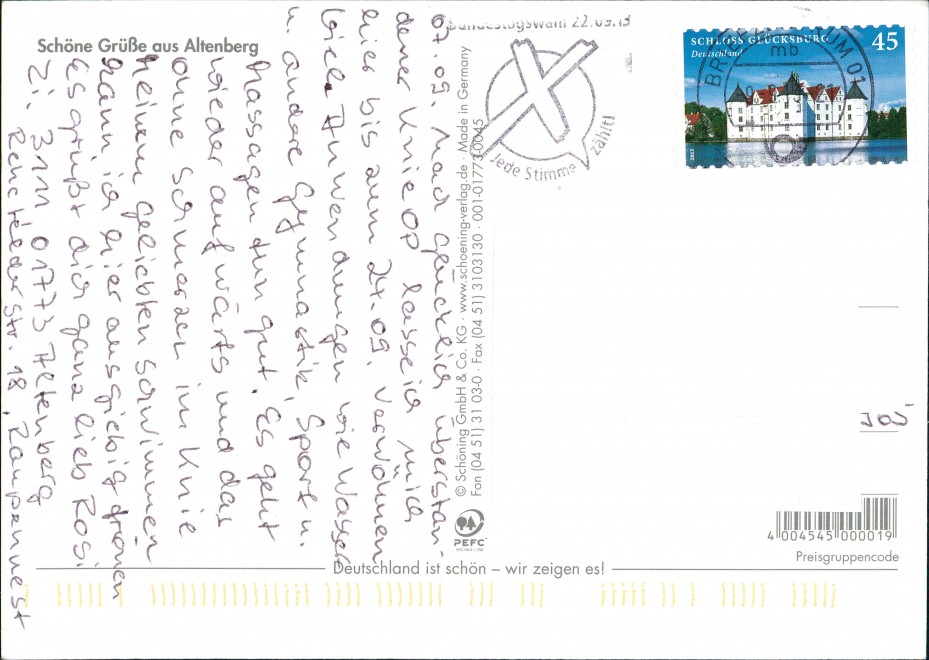 Schöne Grüße aus Altenberg
07.09. Nach glücklich überstan-
dener Knie OP lasse ich mich
hier bis zum 24.09. verwöhnen
viele Anwendungen wie Wasser
u. andere Gymnastik, Sport u.
Massagen tun gut. Es geht
wieder aufwärts und das
ohne Schmerzen im Knie
Meinem geliebten Schwimmen
kann ich hier ausgiebig frönen
Es grüßt dich ganz lieb Rosi
Zi. 3111 01773 Altenberg
Rehefelderstr. 18, Raupennest
© Schöning GmbH & Co. KG · www.schoening-verlag.de · Made in Germany
Fon (04 51) 31 03-0 · Fax (04 51) 3103130 · 001-01773-0045
PEFC
Bundestagswahl 22.09.13
Jede Stimme zählt!
SCHLOSS GLÜCKSBURG 45
Deutschland
2013
BR UM 01
mb
4 004545 000019
Preisgruppencode
Deutschland ist schön – wir zeigen es!